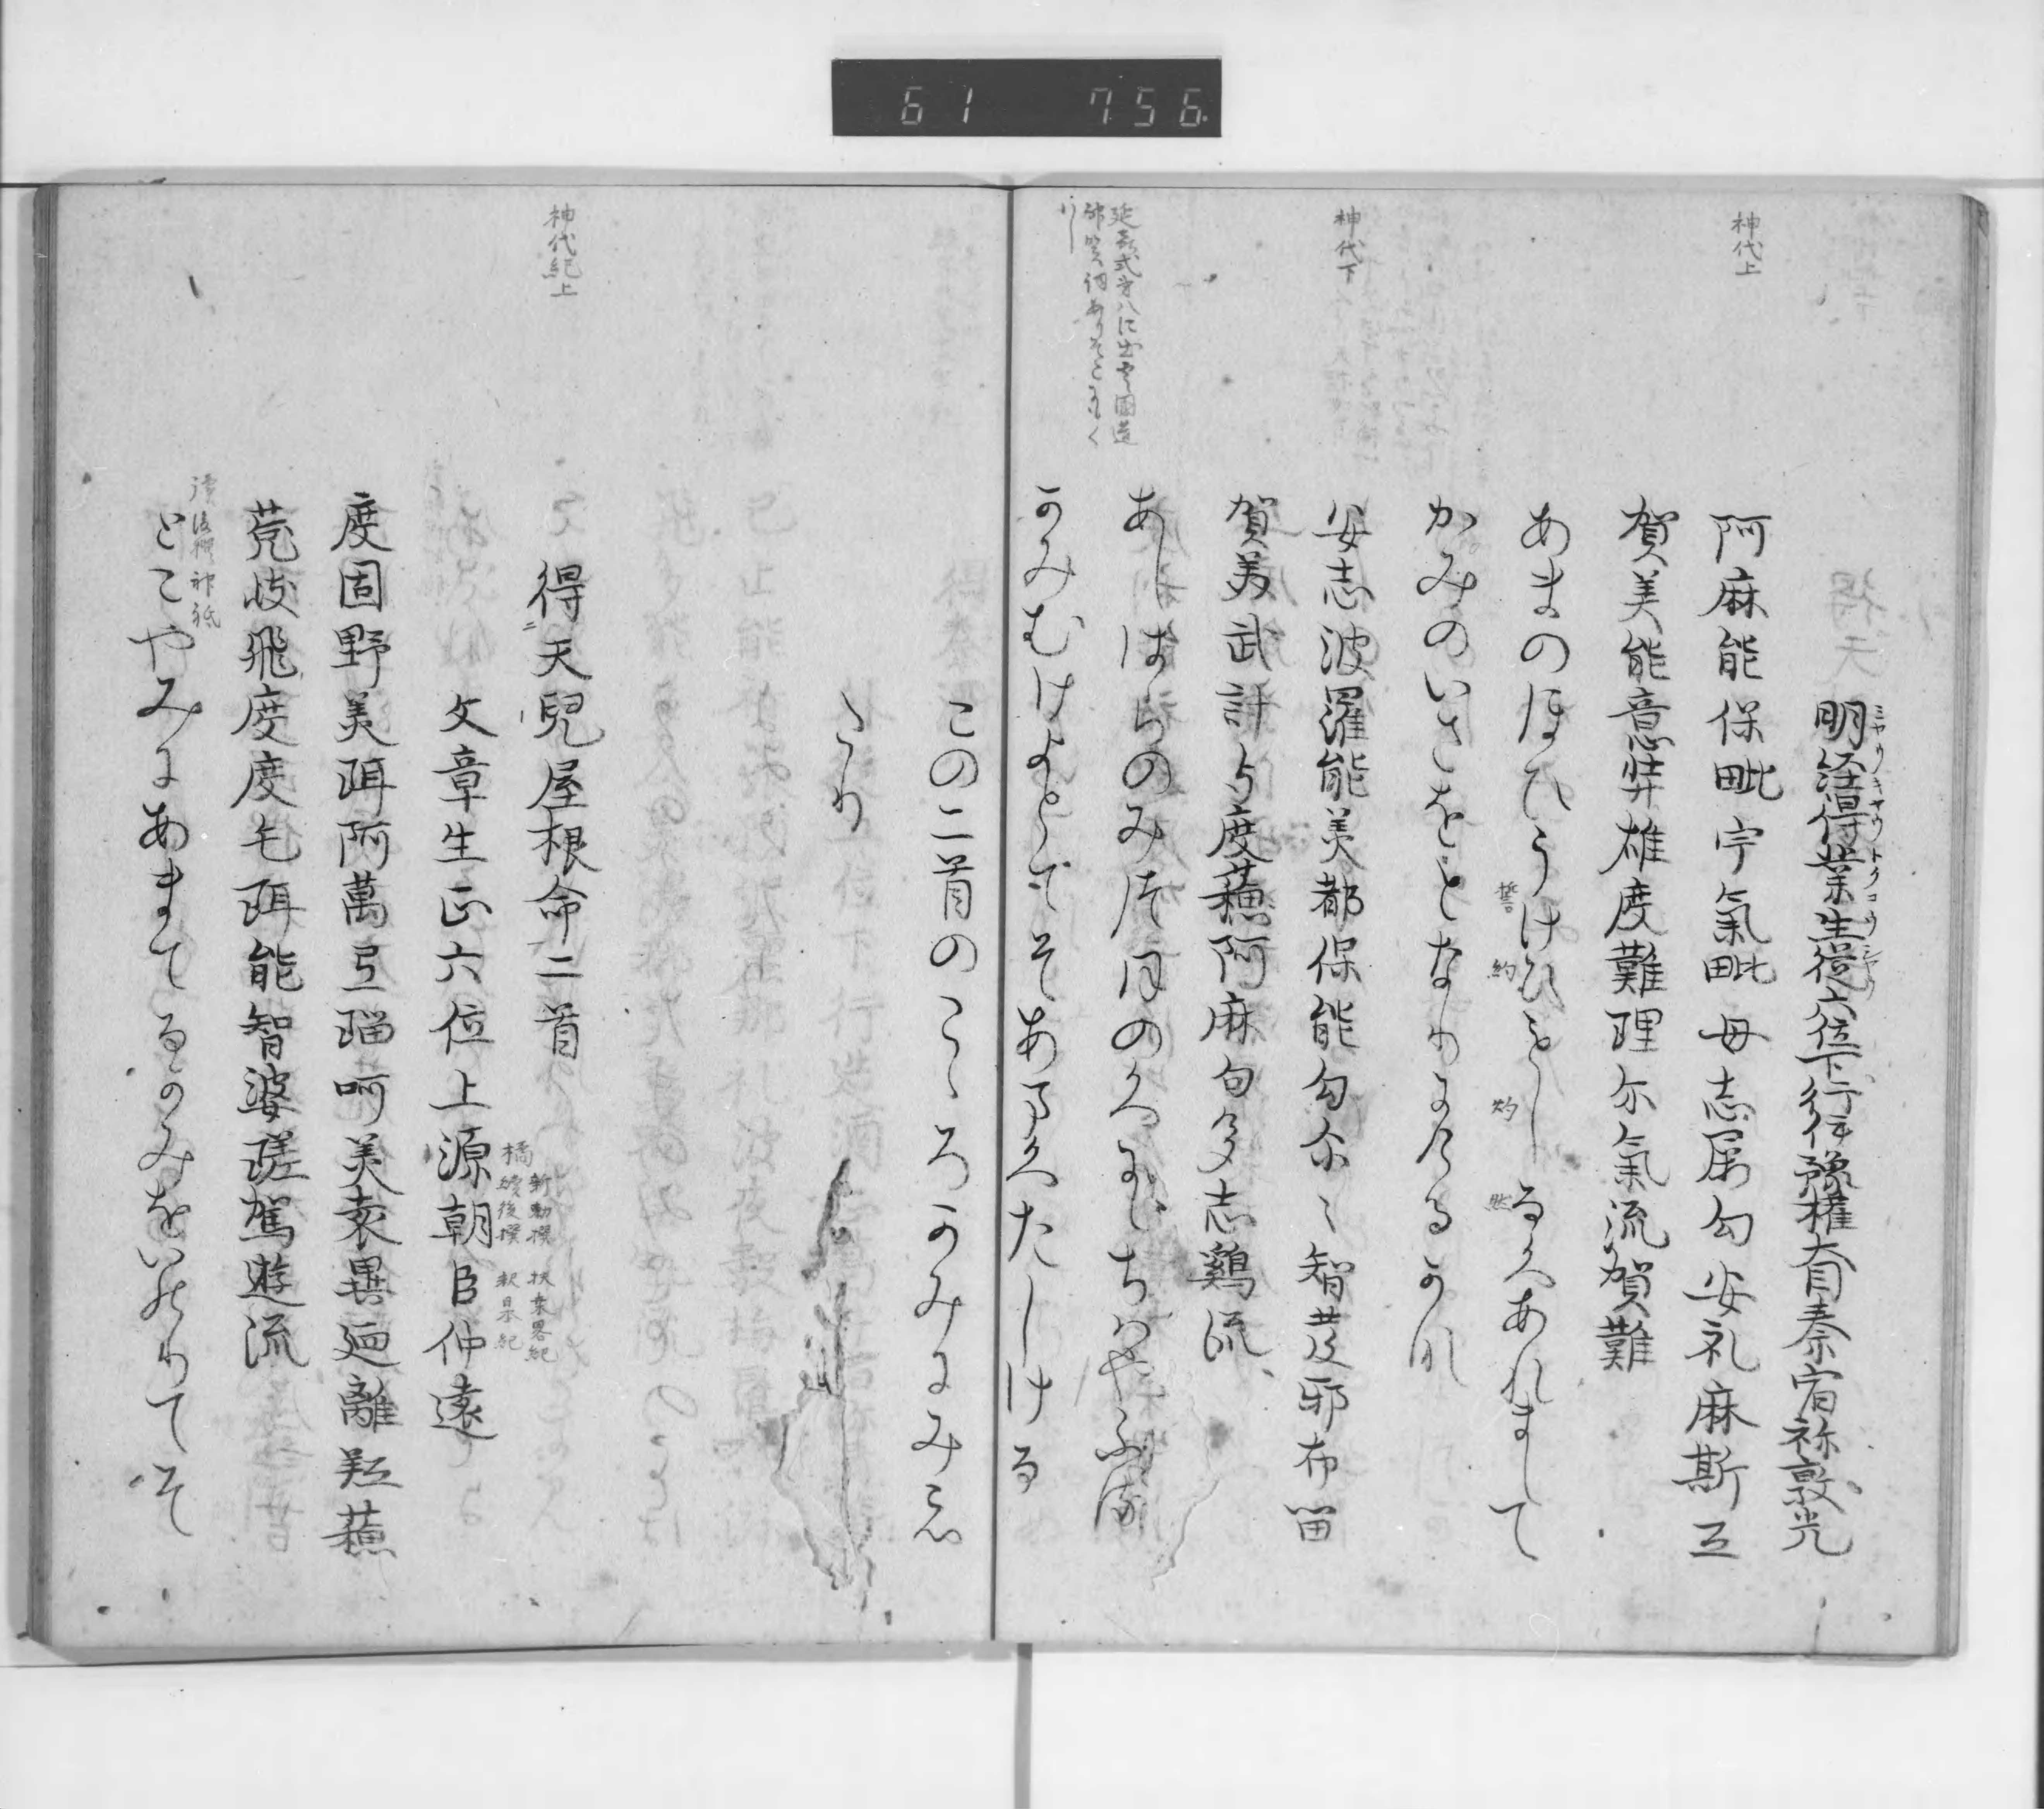 61 756
神代上
明経得業生従六位下行伊豫権大目秦宿祢敦光
阿麻能保毗宇氣毗毋志屬勾安礼麻斯弖
賀美能意弉雄度難理尓氣流賀難
あまのほひうけひもしるくあれまして
誓約 灼 然
かみのいさをとなりにけるかな
神代下
安志波羅能美都保能勾尓〻智芨邪布留
賀美武計与度蘓阿麻勾多志鷄流
あしはらのみつほのくにゝちはやふる
延喜式第八に出雲國造
神賀詞あり
かみむけよとてそあまくたしける
この二首のこゝろかみにみえ
たり
神代紀上
得天兒屋根命二首
新勅撰 扶桑畧紀
橘 續後撰 釈日本紀
文章生正六位上源朝臣仲遠
度固野美珥阿萬弖瑙呵美袁異廼離弖蘓
蒬岐飛度度乇珥能智婆蹉駕遊流
續後撰 神祇
とこやみにあまてるかみをいのりてそ